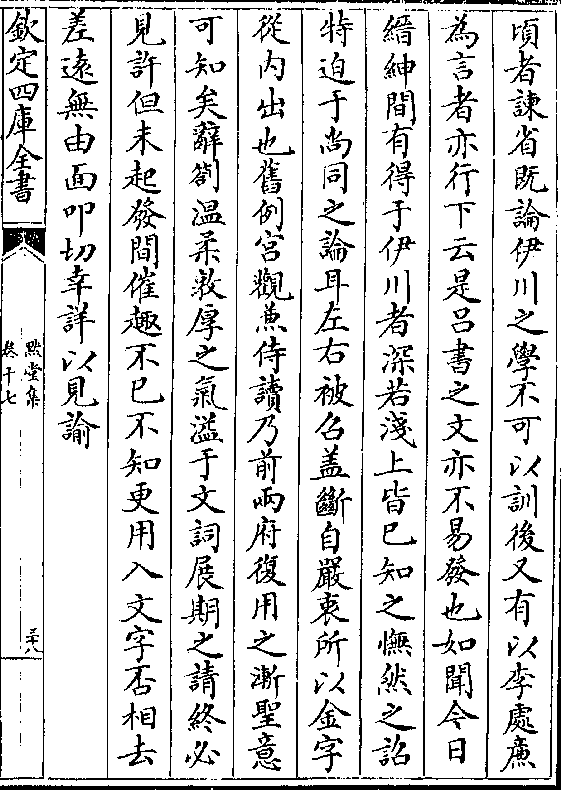 頃者諌省既論伊川之學不可以訓後又有以李處㢘
為言者亦行下云是吕書之文亦不易發也如聞今日
縉紳間有得于伊川者深若淺上皆已知之憮然之詔
特迫于尚同之論耳左右被召盖斷自嚴衷所以金字
從内出也舊例宫觀兼侍讀乃前兩府復用之漸聖意
可知矣辭劄溫柔敦厚之氣溢于文詞展期之請終必
見許但未起發間催趣不已不知更用入文字否相去
差遠無由面叩切幸詳以見諭
欽定四庫全書
黙堂集
卷十七
三十八